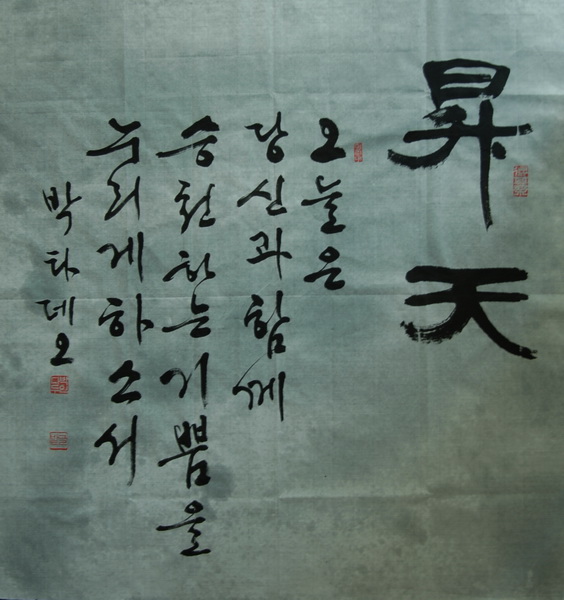 昇天
오늘은
당신과함께
승천하는기쁨을
누리게하소서
박타데오